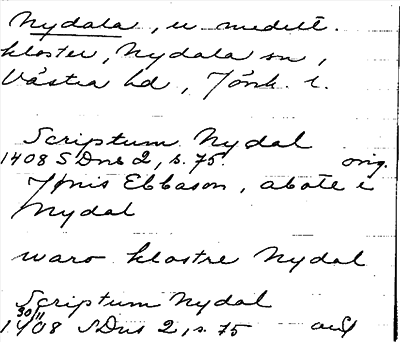 Nydala, u medelt.
kloster, Nydala sn,
Västra hd, Jönk. l.
Scriptum Nydal
1408 SDns 2, s. 75 orig.
Jönis Ebbason, abote i
Nydal
waro klostre Nydal
Scriptum Nydal
30/11
1408 SDns 2, s. 75